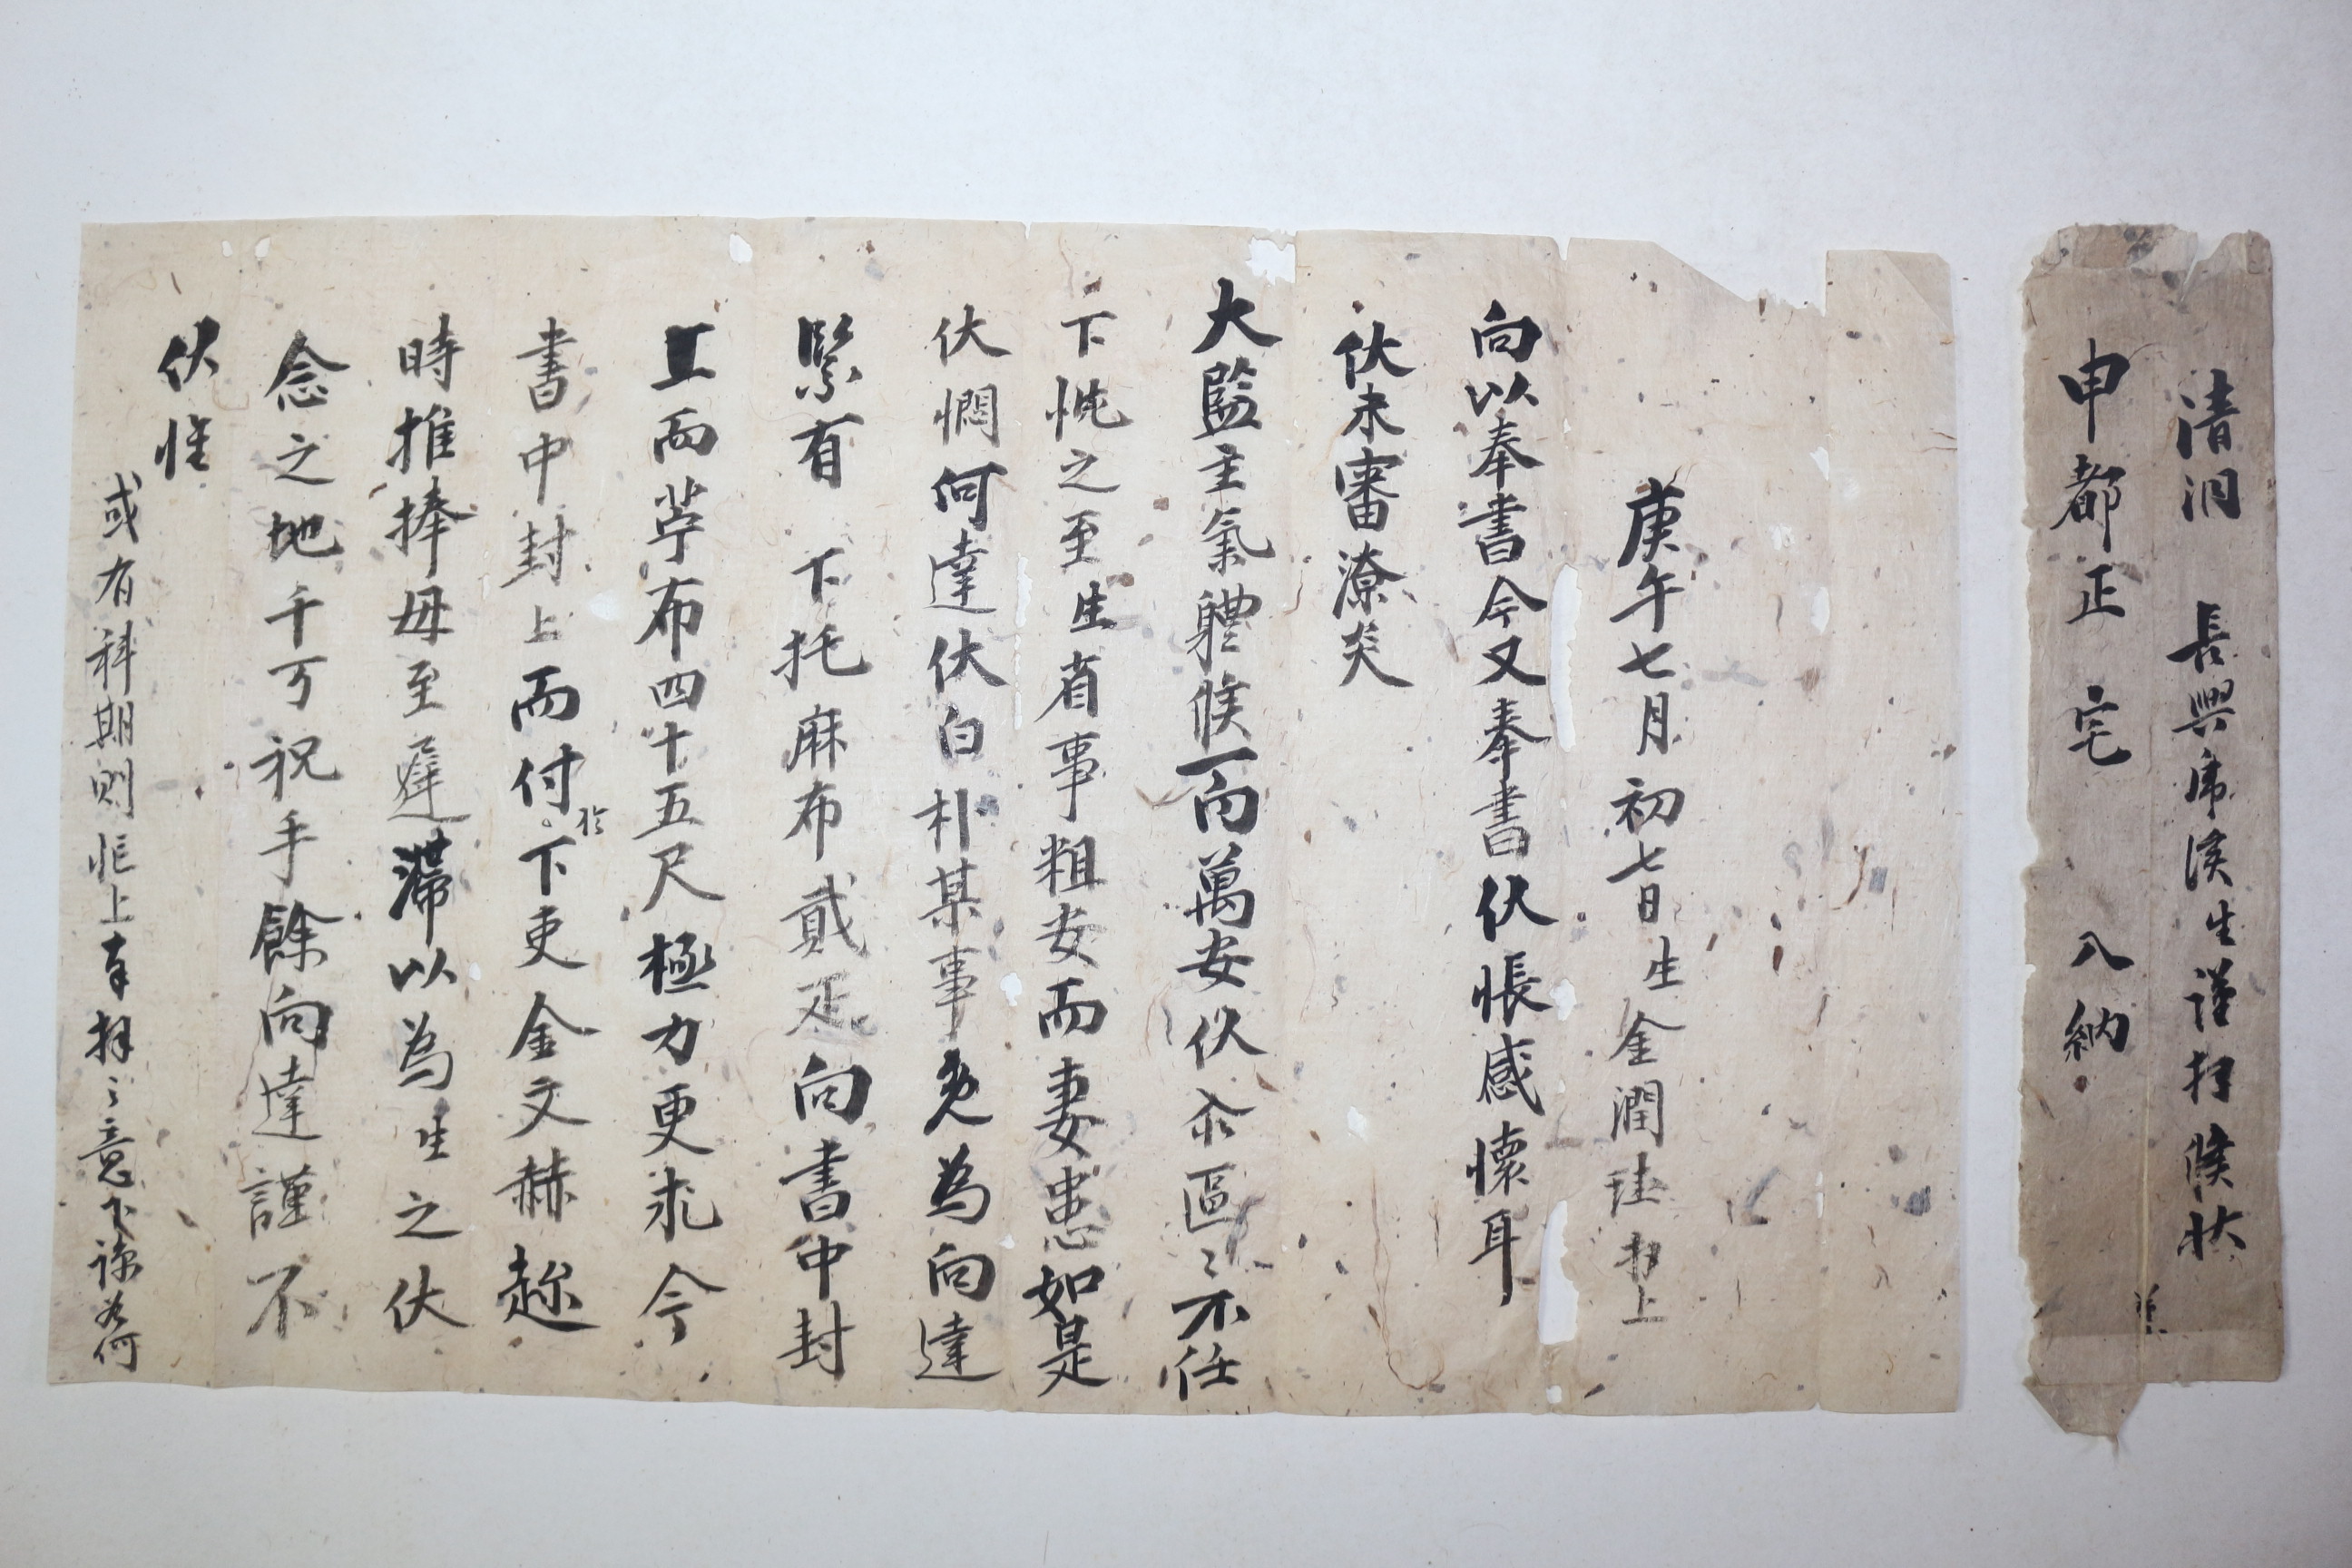 清洞 長興虎溪生謹拜候狀
申都正 宅 入納
庚午七月初七日生金潤珪拜上
向以奉書今又奉書伏悵感懷耳
伏未審潦炎
大監主氣軆候一向萬安伏區〻不任
下忱之至生省事粗安而妻患如是
伏憫何達伏白朴某事免為向達
緊有 下托麻布貳疋向書中封
上而苧布四十五尺極力更求今
書中封上而付於下吏金文赫趂
時推捧毋至遲滯以為生之伏
念之地千万祝手餘向達謹不
伏惟
或有科期則上京拜〻意下諒為何